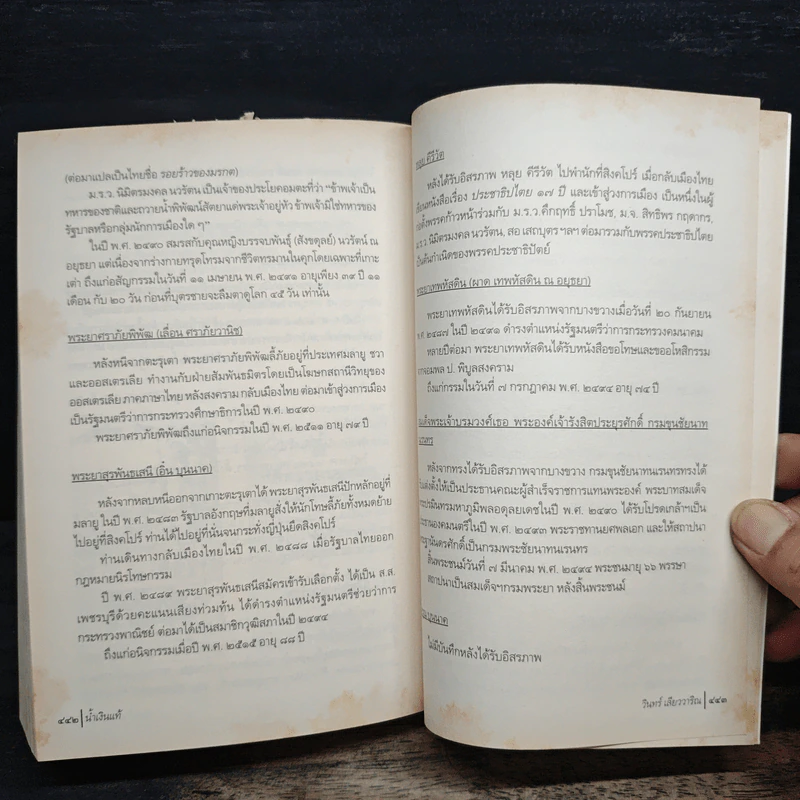 (ต่อมาแปลเป็นไทยชื่อ รอยร้าวของมรกต)
ม.ร.ว. นิมิตรมงคล นวรัตน เป็นเจ้าของประโยคอมตะที่ว่า “ข้าพเจ้าเป็น
ทหารของชาติและถวายน้ำพิพัฒน์สัตยาแต่พระเจ้าอยู่หัว ข้าพเจ้ามิใช่ทหารของ
รัฐบาลหรือกลุ่มนักการเมืองใด ๆ”
ในปี พ.ศ. ๒๔๙๐ สมรสกับคุณหญิงบรรจบพันธุ์ (สังขดุลย์) นวรัตน์ ณ
อยุธยา แต่เนื่องจากร่างกายทรุดโทรมจากชีวิตทรมานในคุกโดยเฉพาะที่เกาะ
เต่า ถึงแก่อสัญกรรมในวันที่ ๑๑ เมษายน พ.ศ. ๒๔๙๑ อายุเพียง ๓๙ ปี ๑๑
เดือน กับ ๒๐ วัน ก่อนที่บุตรชายจะลืมตาดูโลก ๔๕ วัน เท่านั้น
พระยาศราภัยพิพัฒ (เลื่อน ศราภัยวานิช)
หลังหนีจากตะรุเตา พระยาศราภัยพิพัฒลี้ภัยอยู่ที่ประเทศมลายู ชวา
และออสเตรเลีย ทำงานกับฝ่ายสัมพันธมิตรโดยเป็นโฆษกสถานีวิทยุของ
ออสเตรเลียภาคภาษาไทย หลังสงคราม กลับเมืองไทย ต่อมาเข้าสู่วงการเมือง
เป็นรัฐมนตรีว่าการกระทรวงศึกษาธิการในปี พ.ศ. ๒๔๙๐
พระยาศราภัยพิพัฒถึงแก่อนิจกรรมในปี พ.ศ. ๒๕๑๑ อายุ ๗๙ ปี
พระยาสุรพันธเสนี (อิ้น บุนนาค)
หลังจากหลบหนีออกจากเกาะตะรุเตาได้ พระยาสุรพันธเสนีปักหลักอยู่ที่
มลายู ในปี พ.ศ. ๒๔๘๓ รัฐบาลอังกฤษที่มลายูสั่งให้นักโทษลี้ภัยทั้งหมดย้าย
ไปอยู่ที่สิงคโปร์ ท่านได้ไปอยู่ที่นั่นจนกระทั่งญี่ปุ่นยึดสิงคโปร์
ท่านเดินทางกลับเมืองไทยในปี พ.ศ. ๒๔๘๘ เมื่อรัฐบาลไทยออก
กฎหมายนิรโทษกรรม
ปี พ.ศ. ๒๔๘๙ พระยาสุรพันธเสนีสมัครเข้ารับเลือกตั้ง ได้เป็น ส.ส.
เพชรบุรีด้วยคะแนนเสียงท่วมท้น ได้ดำรงตำแหน่งรัฐมนตรีช่วยว่าการ
กระทรวงพาณิชย์ ต่อมาได้เป็นสมาชิกวุฒิสภาในปี ๒๔๙๔
ถึงแก่อนิจกรรมเมื่อปี พ.ศ. ๒๕๑๕ อายุ ๘๘ ปี
๔๔๒ | น้ำเงินแท้
คีรีวัต
หลังได้รับอิสรภาพ หลุย คีรีวัต ไปพำนักที่สิงคโปร์ เมื่อกลับเมืองไทย
เขียนหนังสือเรื่อง ประชาธิปไตย ๑๗ ปี และเข้าสู่วงการเมือง เป็นหนึ่งในผู้
ก่อตั้งพรรคก้าวหน้าร่วมกับ ม.ร.ว.คึกฤทธิ์ ปราโมช, ม.จ. สิทธิพร กฤดากร,
ม.ร.ว นิมิตรมงคล นวรัตน, สอ เสถบุตร ฯลฯ ต่อมารวมกับพรรคประชาธิปไตย
เป็นต้นกำเนิดของพรรคประชาธิปัตย์
พระยาเทพหัสดิน (ผาด เทพหัสดิน ณ อยุธยา)
พระยาเทพหัสดินได้รับอิสรภาพจากบางขวางเมื่อวันที่ ๒๐ กันยายน
พ.ศ. ๒๔๘๗ ในปี ๒๔๙๑ ดำรงตำแหน่งรัฐมนตรีว่าการกระทรวงคมนาคม
หลายปีต่อมา พระยาเทพหัสดินได้รับหนังสือขอโทษและขออโหสิกรรม
จากจอมพล ป. พิบูลสงคราม
ถึงแก่กรรมในวันที่ ๗ กรกฎาคม พ.ศ. ๒๔๙๔ อายุ ๗๔ ปี
สมเด็จพระเจ้าบรมวงศ์เธอ พระองค์เจ้ารังสิตประยูรศักดิ์ กรมขุนชัยนาท
นเรนทร
หลังจากทรงได้รับอิสรภาพจากบางขวาง กรมขุนชัยนาทนเรนทรทรงได้
รับแต่งตั้งให้เป็นประธานคณะผู้สำเร็จราชการแทนพระองค์ พระบาทสมเด็จ
พระปรมินทรมหาภูมิพลอดุลยเดชในปี พ.ศ. ๒๔๙๐ ได้รับโปรดเกล้าฯเป็น
ประธานองคมนตรีในปี พ.ศ. ๒๔๙๓ พระราชทานยศพลเอก และให้สถาปนา
ฐานันดรศักดิ์เป็นกรมพระชัยนาทนเรนทร
สิ้นพระชนม์วันที่ ๗ มีนาคม พ.ศ. ๒๔๙๔ พระชนมายุ ๖๖ พรรษา
สถาปนาเป็นสมเด็จฯกรมพระยา หลังสิ้นพระชนม์
บุนนาค
ไม่มีบันทึกหลังได้รับอิสรภาพ
วินทร์ เลียววาริณ | ๔๔๓